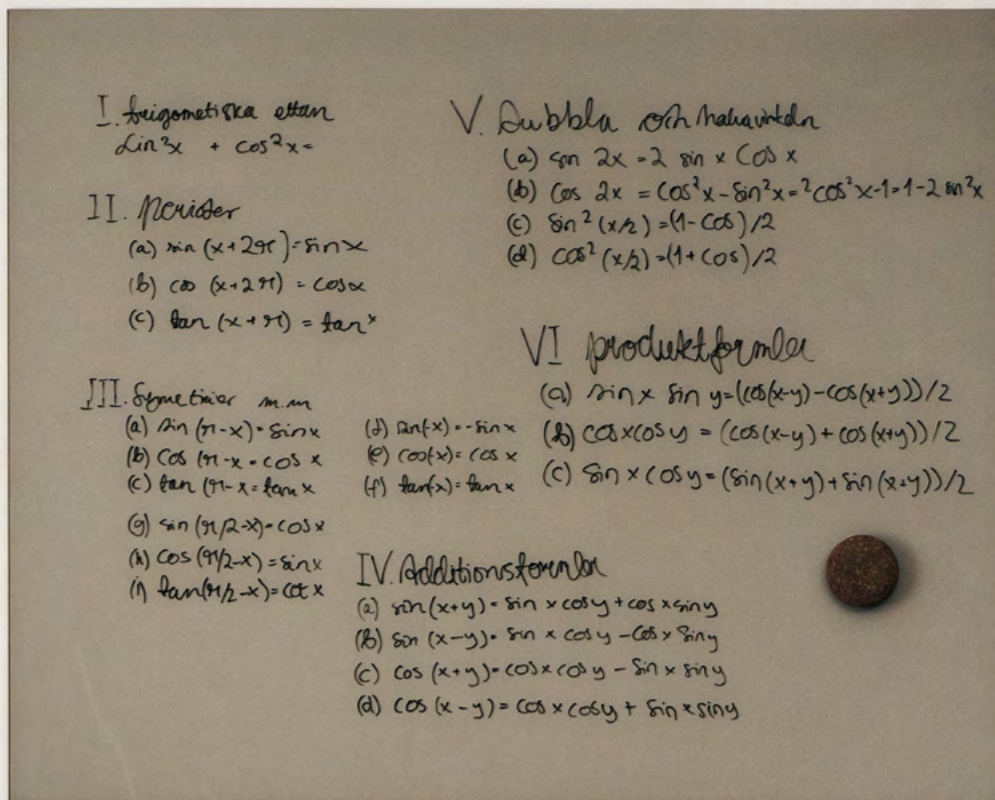 I. trigometiska ettan
sin²x + cos²x=
II. Perioder
(a) sin (x+2π)=sinx
(b) cos (x+2π) = cosx
(c) tan (x+π) = tan x
III. Symetrier m.m
(a) sin (π-x)=sinx
(b) cos (π-x = cos x
(c) tan (π-x = tan x
(d) sin(-x)=-sin x
(e) cos(x)= cos x
(f) tan(x)= tan x
(g) sin (π/2-x)=cosx
(h) cos (π/2-x)=sinx
(i) tan(π/2-x)=cot x
IV. Additionsformler
(a) sin(x+y)=sin x cosy+cos x siny
(b) sin (x-y)= sin x cosy -cosx siny
(c) cos (x+y)=cosx cosy - sin x siny
(d) cos (x-y)= cos x cosy + sin x siny
V. Dubbla och halva vinkeln
(a) sin 2x=2 sin x cos x
(b) cos 2x = cos²x-sin²x=2cos²x-1=1-2 sin²x
(c) sin² (x/2) =(1-cos)/2
(d) cos² (x/2)=(1+cos)/2
VI produktformler
(a) sin x sin y=(cos(x-y)-cos(x+y))/2
(b) cosxcosy = (cos(x-y)+cos(x+y))/2
(c) sin x cosy=(sin(x+y)+sin(x-y))/2